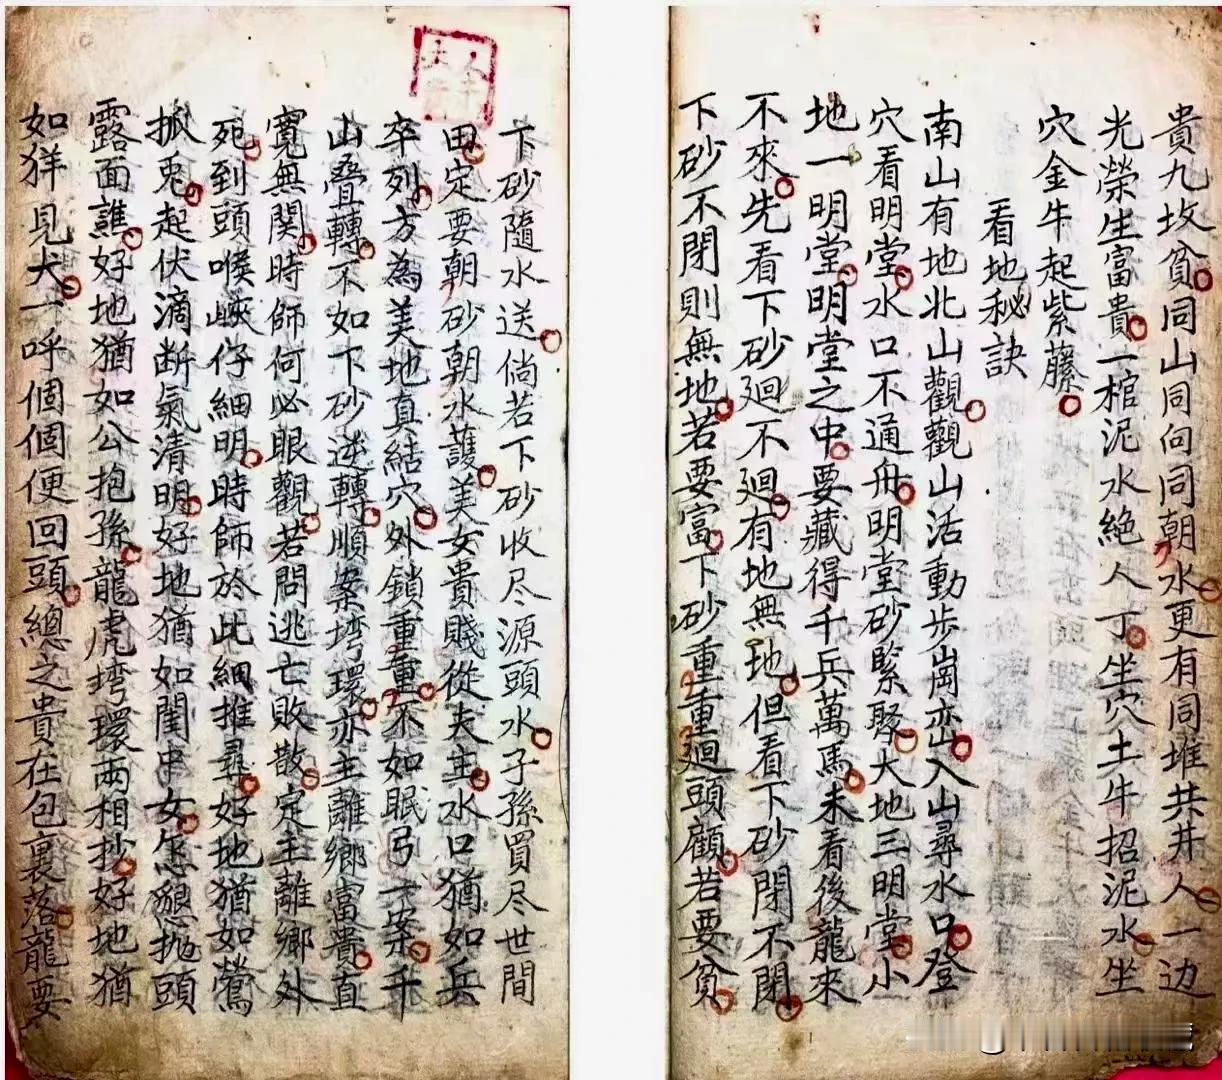 貴九坟貧同山同向同朝水更有同堆共井人一边
光榮生富貴一棺泥水絶人丁坐穴土牛招泥水坐
穴金牛起紫藤
看地秘訣
南山有地北山觀觀山活動步崗巒入山尋水口登
穴看明堂水口不通舟明堂砂緊聚大地三明堂小
地一明堂明堂之中要藏得千兵萬馬未看後龍來
不來先看下砂廻不廻有地無地但看下砂閉不閉
下砂不閉則無地若要富下砂重重廻頭顧若要貧
下砂隨水送倘若下砂收尽源頭水子孫買尽世間
田定要朝砂朝水護美女貴賤從夫主水口猶如兵
卒列方為美地真結穴外鎖重重不如眠弓一案千
山叠轉不如下砂逆轉順案塆環亦主離鄉富貴直
寬無関時師何必眼觀若問逃亡敗散定主離鄉外
死到頭喉峽仔細明時師於此細推尋好地猶如鶯
抓兎起伏滴断氣清明好地猶如閨中女怎懇抛頭
露面誰好地猶如公抱孫龍虎塆環兩相抄好地猶
如羊見犬一呼個個便回頭總之貴在包裏落龍要